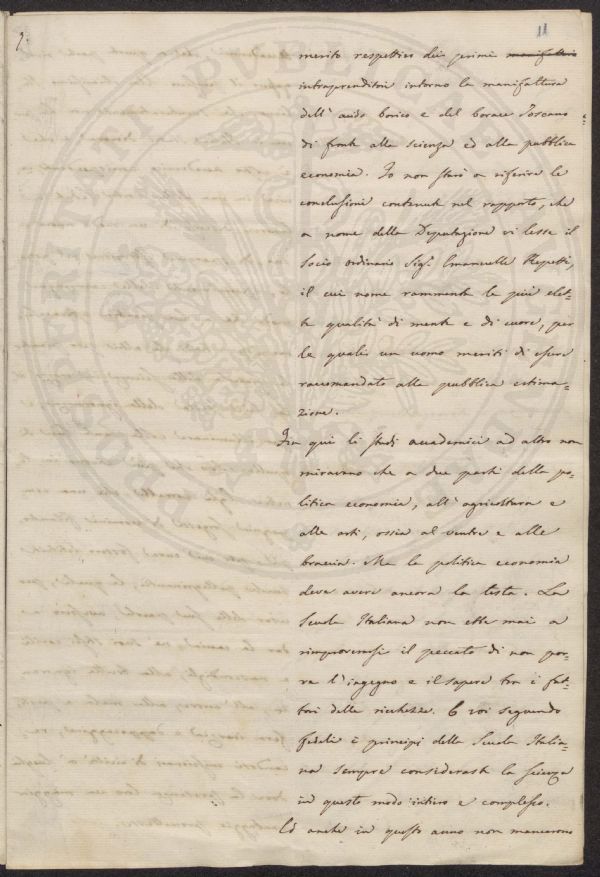 7.
11
merito respettivo dei primi manifattori
intraprenditori intorno la manifattura
dell'acido borico e del borace Toscano
di fronte alla scienza ed alla pubblica
economia. Io non starò a riferire le
conclusioni contenute nel rapporto, che
a nome della Deputazione vi lesse il
socio ordinario Sig.r Emanuelle Repetti,
il cui nome rammenta le più elet-
te qualità di mente e di cuore, per
le quali un uomo meriti di essere
raccomandato alla pubblica estima-
zione.
Fin qui li studi accademici ad altro non
miravano che a due parti della po-
litica economia, all'agricoltura e
alle arti, ossia al ventre e alle
braccia. Ma la politica economia
deve avere ancora la testa. La
Scuola Italiana non ebbe mai a
rimproverarsi il peccato di non por-
re l'ingegno e il sapere tra i fat-
tori delle ricchezze. E voi seguendo
fedeli i principi della Scuola Italia-
na sempre consideraste la scienza
in questo modo intiero e complesso.
Ed anche in questo anno non mancarono
PROSPERITATI PUBLICAE